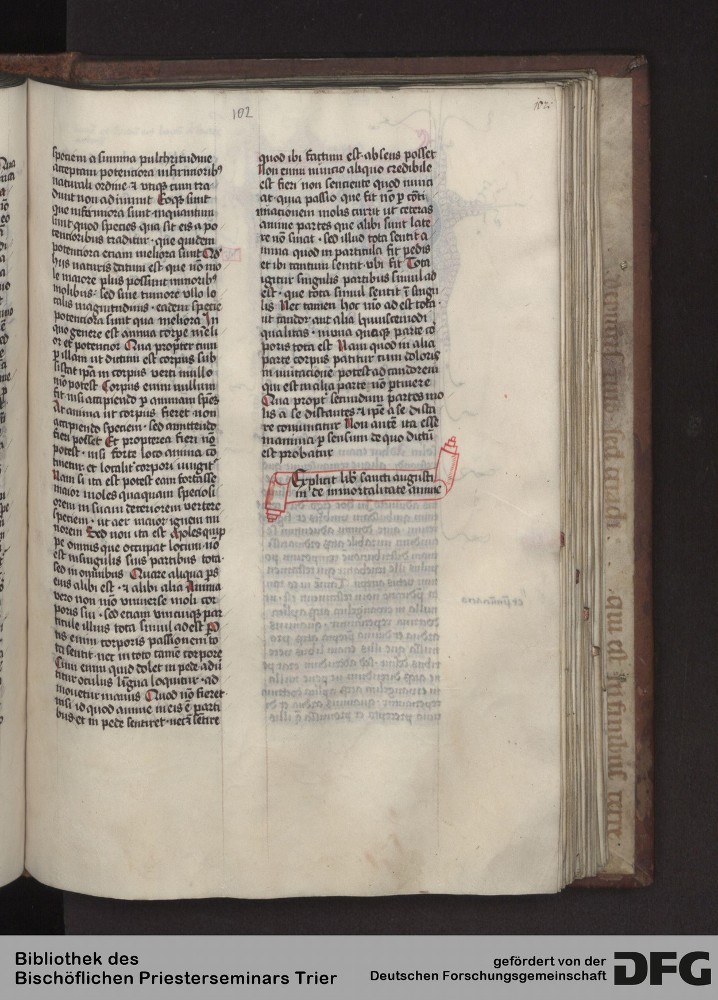 102
speciem a summa pulchritudine
acceptam potentiora infirmioribꝰ
naturali ordine ⁊ utiqꝫ cum tra
dunt non adimunt Eoqꝫ sunt
que infirmiora sunt inquantum
sunt quod species qua sit eis a po
tentioribus traditur · que quidem
potentiora etiam meliora sunt
le maiore plus possunt minoribꝰ
molibus · sed sine tumore ullo lo
calis magnitudinis · eadem specie
potentiora sunt qua meliora In
quo genere est anima corpe meli
or et potentior Qua propter cum
p illam ut dictum est corpus sub
sistat ipam in corpus verti nullo
mo potest Corpus enim nullum
fit nisi accipiendo p animam spem
At anima ut corpus fieret non
accipiendo speciem · sed amittendo
fieri posset Et propterea fieri no
potest · nisi forte loco anima co
tinetur et localit corpori iungit
Nam si ita est potest eam fortasse
maior moles quaquam speciosi
orem in suam deteriorem vertere
speciem · ut aer maior ignem mi
norem Sed non ita est Moles quip
pe omnis que occupat locum no
est insingulis suis partibus tota ·
sed in omnibus Quare aliqua ps
eius alibi est · ⁊ alibi alia Anima
vero non mo vniuerse moli cor
poris sui · sed etiam vnicuiqꝫ par
ticule illius tota simul adest
tis enim corporis passionem to
ta sentit nec in toto tame corpore
Cum enim quid dolet in pede adu
titur oculus lingua loquitur · ad
mouetur manus Quod no fieret
nisi id quod anime in eis e parti
bus et in pede sentiret · nec sentire
quod ibi factum est absens posset
Non enim nuncio aliquo credibile
est fieri non sentiente quod nunci
at · quia passio que fit no p coti
nuacionem molis currit ut ceteras
anime partes que alibi sunt late
re no sinat · sed illud tota sentit a
nima quod in particula fit pedis
et ibi tantum sentit · vbi fit Tota
igitur singulis partibus simul ad
est · que tota simul sentit i singu
lis Nec tamen hoc mo adest tota ·
ut candor aut alia huiuscemodi
qualitas · in vna quaqꝫ parte co
poris tota est Nam quod in alia
parte corpus patitur cum coloris
in mutacione potest ad candorem
qui est in alia parte no ptinere
Qua propt secundum partes mo
lis a se distantes ⁊ ipe a se dista
re conuincitur Non aute ita esse
in anima p sensum de quo dictu
est probatur
Explicit lib sancti augusti
ni de inmortalitate anime
Bibliothek des
Bischöflichen Priesterseminars Trier
gefördert von der
Deutschen Forschungsgemeinschaft
DFG